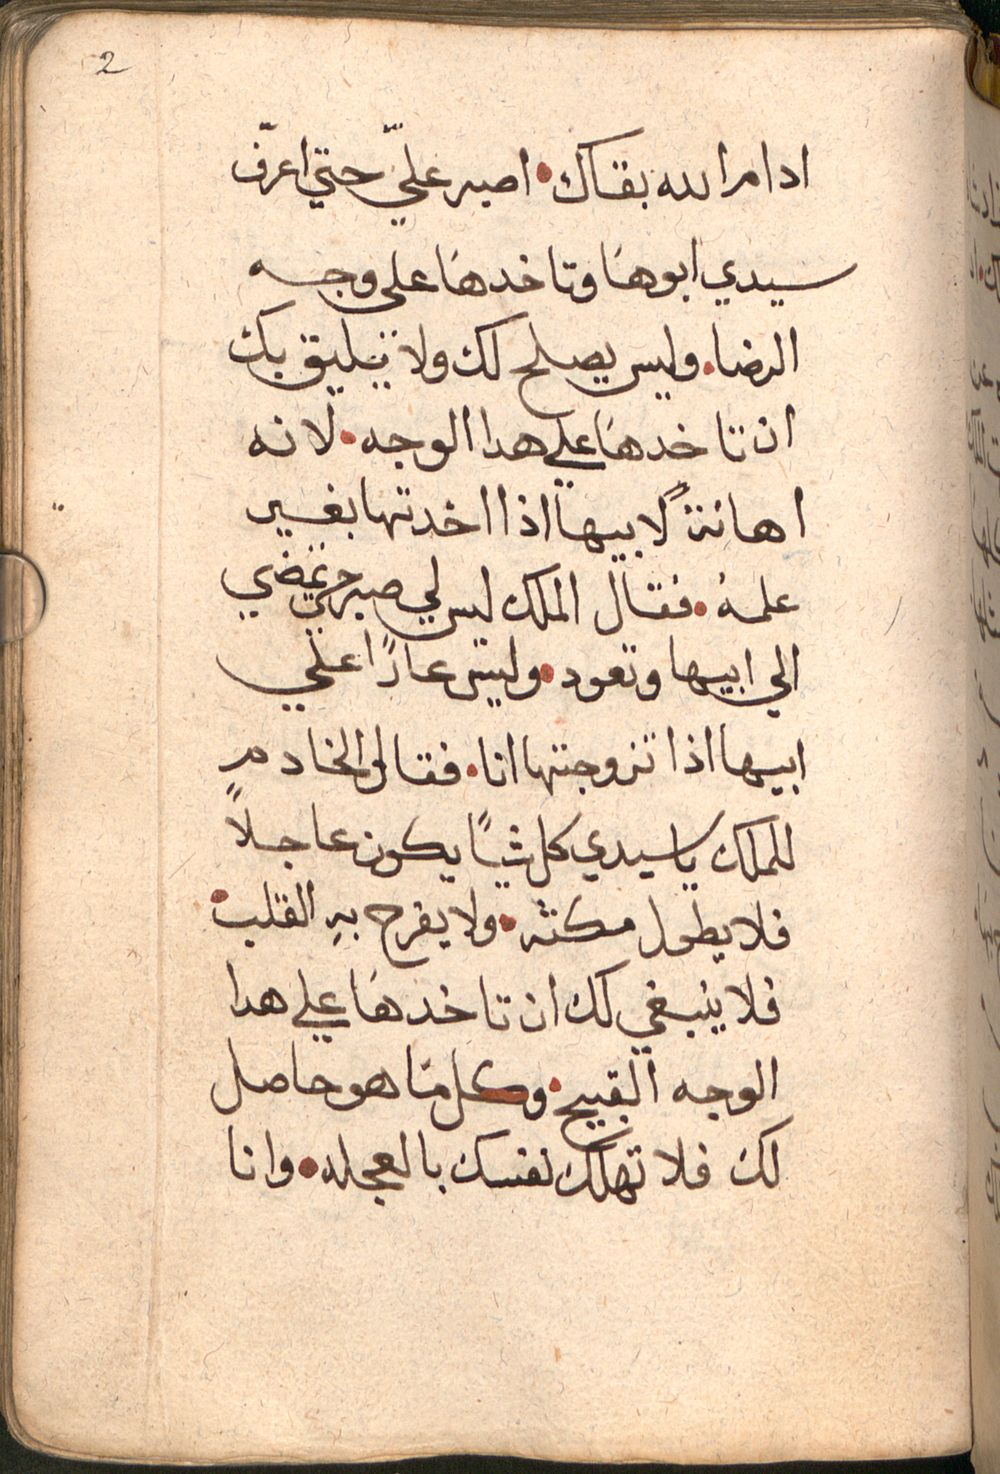 2
ادام الله بقاك • اصبر عليّ حتي اعرّف
سيدي ابوها وتاخدها على وجه
الرضا • وليس يصلح لك ولا يليق بك
ان تاخدها علي هدا الوجه • لانه
اهانةً لابيها اذا اخدتها بغير
علمهُ • فقال الملك ليس لي صبر حتي تمضي
الي ابيها وتعود • وليس عارًا علي
ابيها اذا تزوجتها انا • فقال الخادم
للملك يا سيدي كل شيًا يكون عاجلاً
فلا يطول مكثه • ولا يفرح بهِ القلب •
فلا ينبغي لك ان تاخدها علي هدا
الوجه القبيح • وكل ما هو حاصل
لك فلا تهلك نفسك بالعجله • وانا